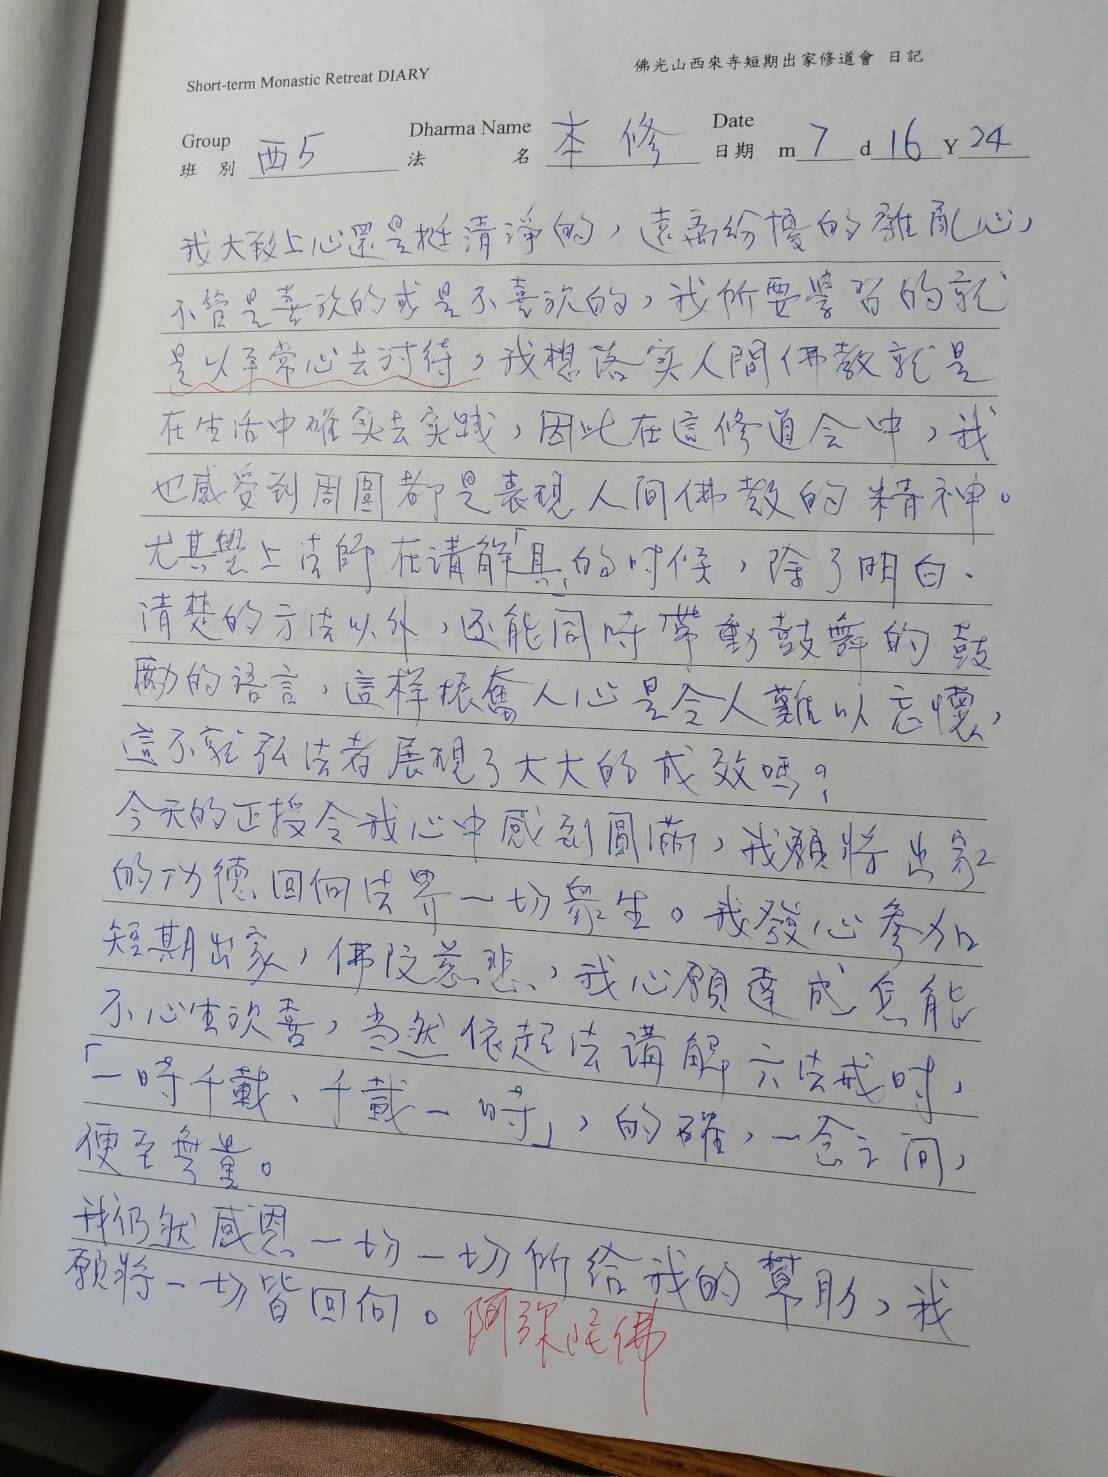 Short-term Monastic Retreat DIARY 佛光山西來寺短期出家修道會 日記
Group Dharma Name Date
班別 西5 法名 本修 日期 m 7 d 16 Y 24
我大致上心還是挺清淨的，遠離紛擾的雜亂心，
不管是喜欢的或是不喜欢的，我所要學習的就
是以平常心去讨待，我想落实人間佛教就是
在生活中確实去实踐，因此在這修道会中，我
也感受到周圍都是表現人间佛教的精神。
尤其覺上法師在講解「具」的时候，除了明白、
清楚的方法以外，还能同時帶動鼓舞的鼓
勵的語言，這样振奮人心是令人難以忘懷，
這不就弘法者展現了大大的成效嗎？
今天的正授令我心中感到圓滿，我願将出家
的功德回向法界一切眾生。我發心參加
短期出家，佛陀慈悲，我心願達成怎能
不心生欢喜，当然依起法講解六法戒时，
「一時千載、千載一時」，的確，一念之间，
便至無量。
我仍然感恩一切一切所给我的幫助，我
願将一切皆回向。阿弥陀佛